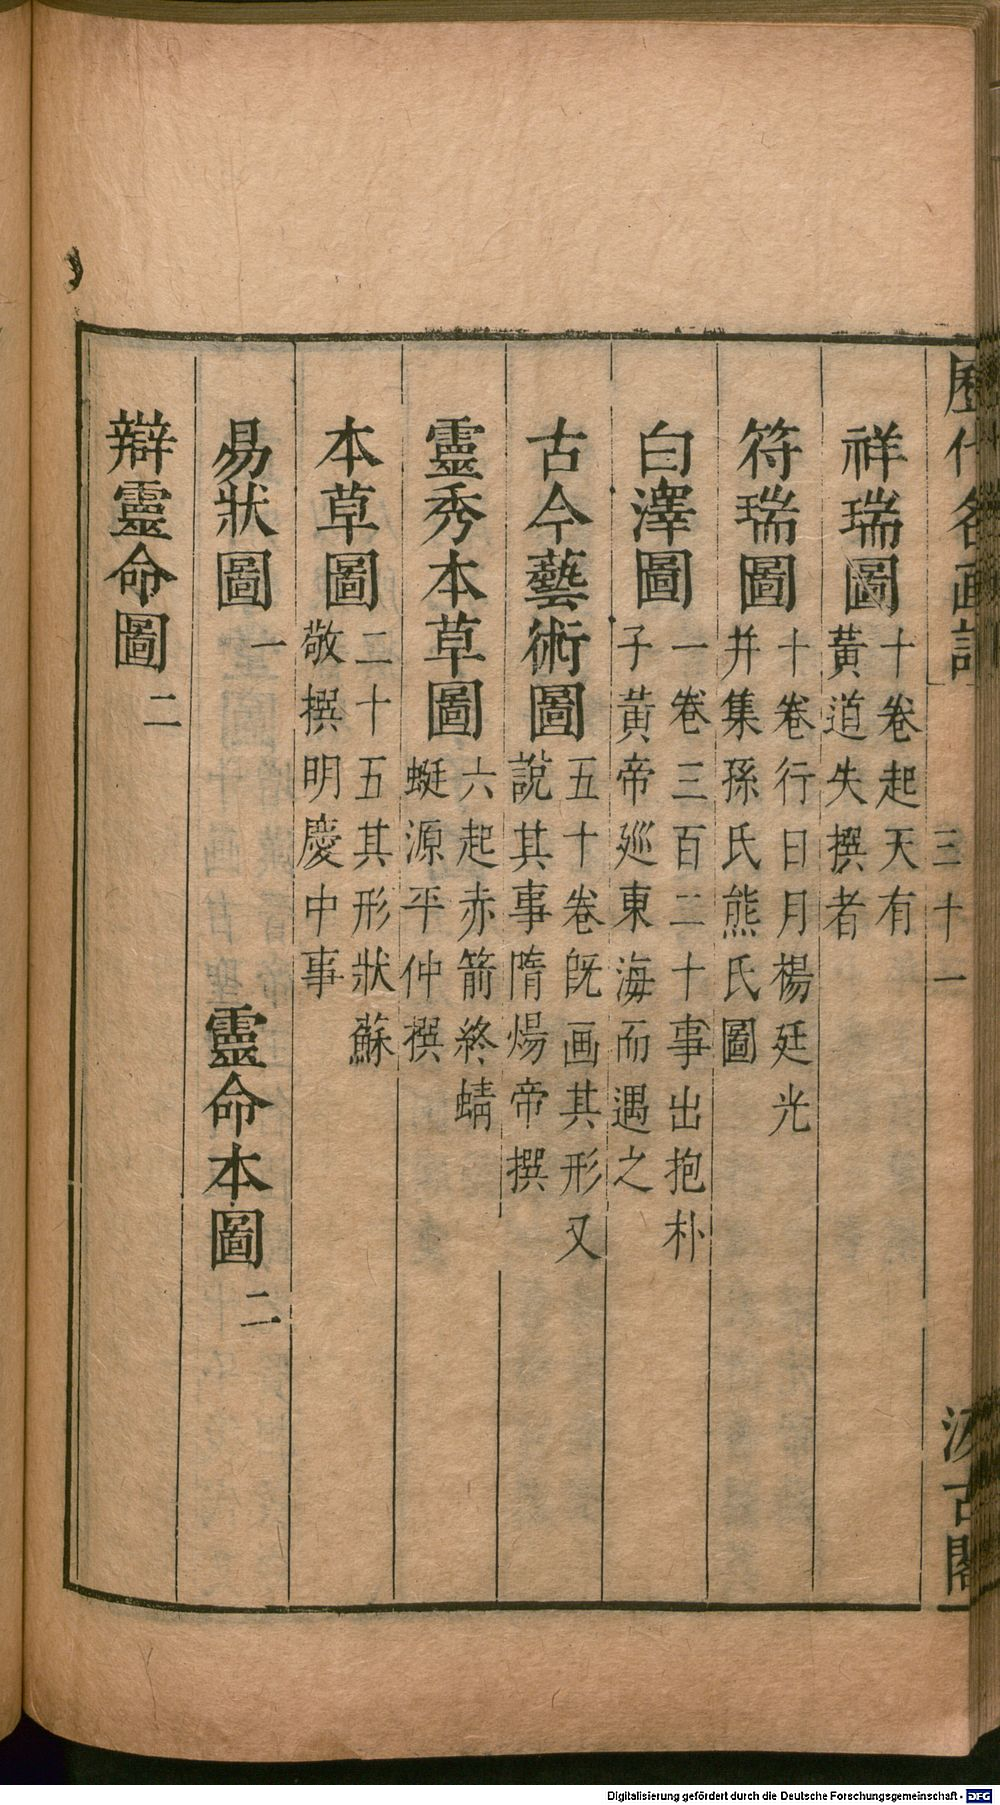 歷代名画記
三十一
汲古閣
祥瑞圖 十卷起天有黃道失撰者
符瑞圖 十卷行日月楊廷光并集孫氏熊氏圖
白澤圖 一卷三百二十事出抱朴子黃帝廵東海而遇之
古今藝術圖 五十卷旣画其形又說其事隋煬帝撰
靈秀本草圖 六起赤箭終蜻蜓源平仲撰
本草圖 二十五其形狀蘇敬撰明慶中事
易狀圖 一 靈命本圖 二
辯靈命圖 二
Digitalisierung gefördert durch die Deutsche Forschungsgemeinschaft - DFG